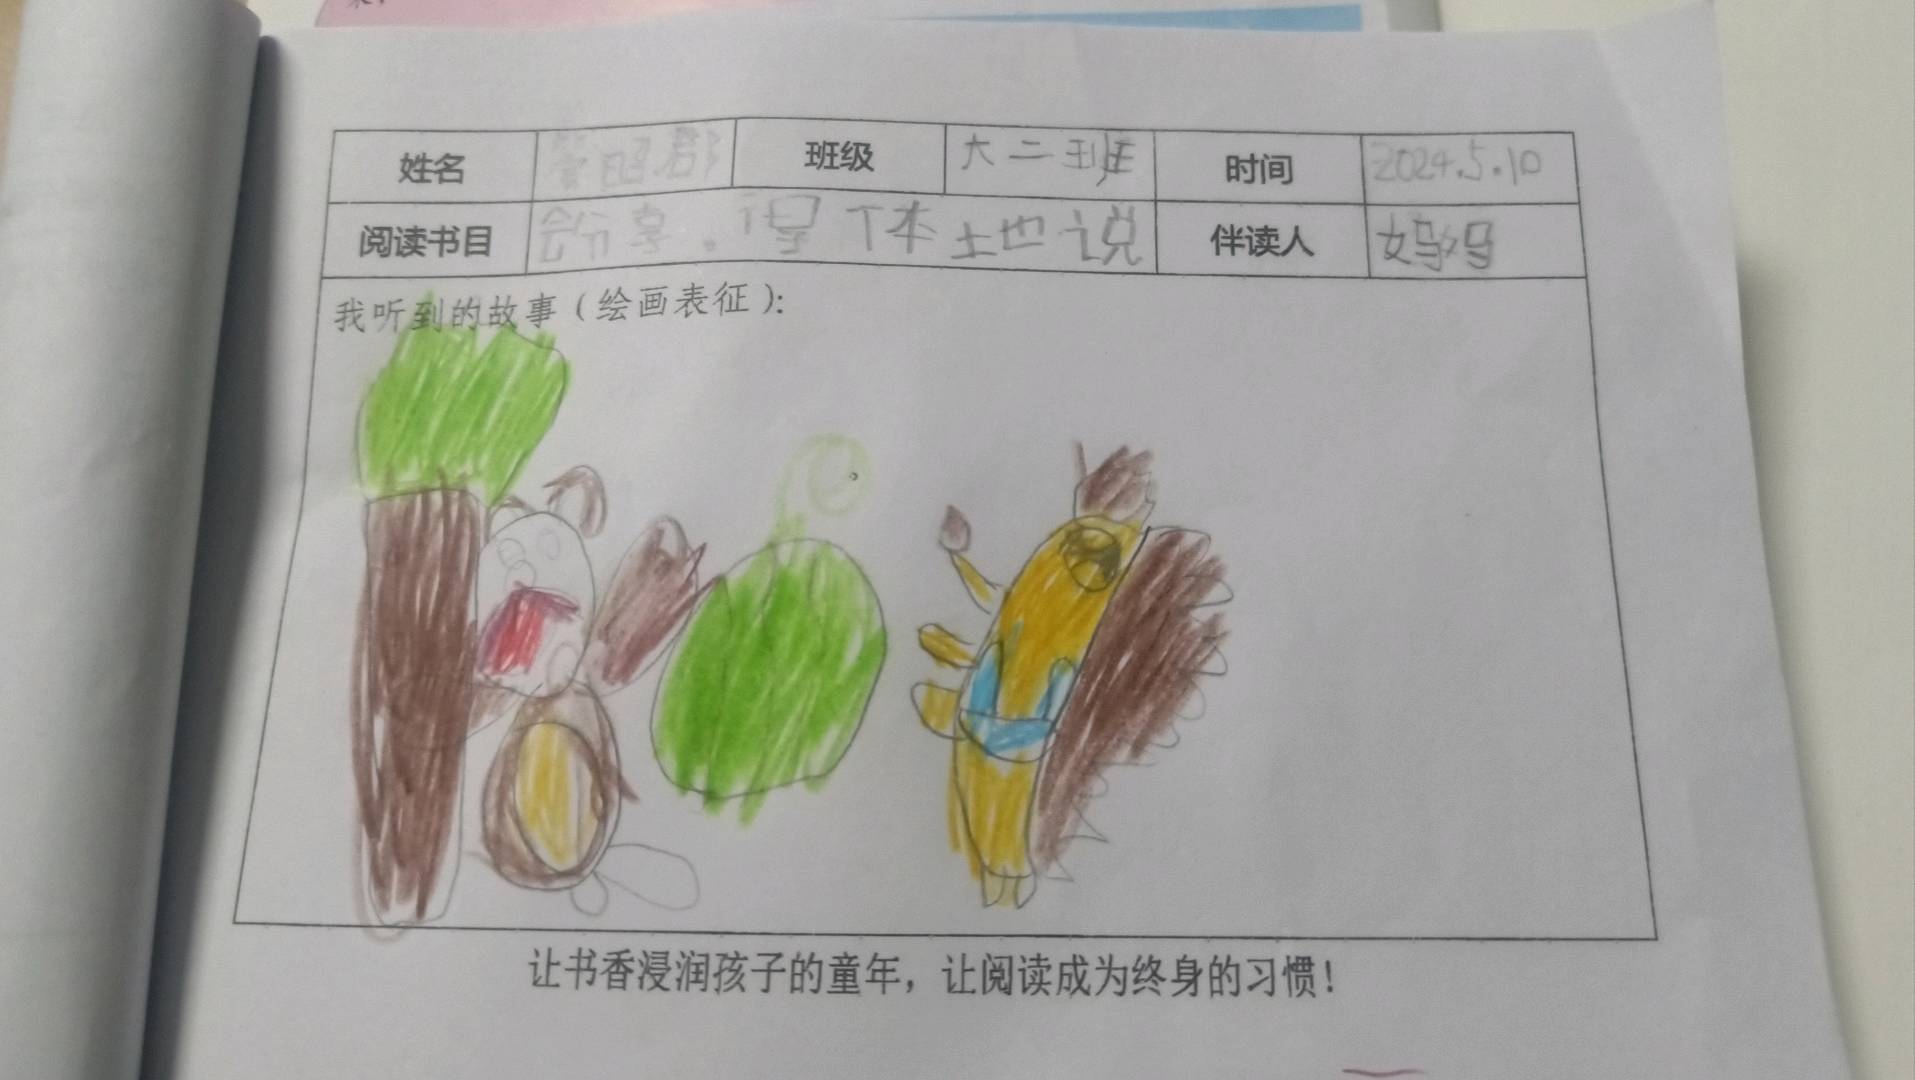 姓名 管昭郡 班级 大二班 时间 2024.5.10
阅读书目 会分享。得体土也说 伴读人 妈妈
我听到的故事（绘画表征）：
让书香浸润孩子的童年，让阅读成为终身的习惯！